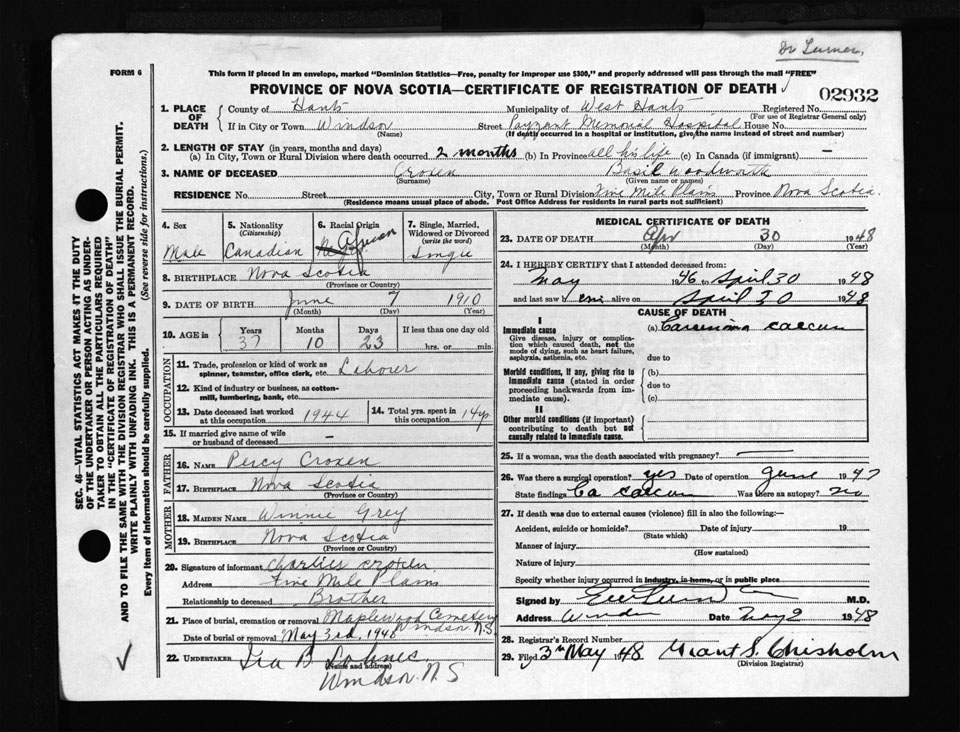 Dr Turner,
FORM 6
This form if placed in an envelope, marked "Dominion Statistics—Free, penalty for improper use $300," and properly addressed will pass through the mail "FREE"
PROVINCE OF NOVA SCOTIA—CERTIFICATE OF REGISTRATION OF DEATH
02932
1. PLACE OF DEATH
County of Hants Municipality of West Hants Registered No.
(For use of Registrar General only)
If in City or Town Windsor Street Payzant Memorial Hospital House No.
(Name) (If death occurred in a hospital or institution, give the name instead of street and number)
2. LENGTH OF STAY (in years, months and days)
(a) In City, Town or Rural Division where death occurred 2 months (b) In Province all his life (c) In Canada (if immigrant) —
3. NAME OF DECEASED Croxen Basil Woodworth
(Surname) (Given name or names)
RESIDENCE No. Street City, Town or Rural Division Five Mile Plains Province Nova Scotia.
(Residence means usual place of abode. Post Office Address for residents in rural parts not sufficient)
4. Sex
Male
5. Nationality
(Citizenship)
Canadian
6. Racial Origin
African
7. Single, Married, Widowed or Divorced
(write the word)
Single
8. BIRTHPLACE Nova Scotia
(Province or Country)
9. DATE OF BIRTH June 7 1910
(Month) (Day) (Year)
10. AGE in Years Months Days If less than one day old
37 10 23 hrs. or min.
OCCUPATION
11. Trade, profession or kind of work as
spinner, teamster, office clerk, etc. Laborer
12. Kind of industry or business, as cotton-
mill, lumbering, bank, etc.
13. Date deceased last worked
at this occupation 1944
14. Total yrs. spent in
this occupation 14 yr
15. If married give name of wife
or husband of deceased —
FATHER
16. NAME Percy Croxen
17. BIRTHPLACE Nova Scotia
(Province or Country)
MOTHER
18. MAIDEN NAME Winnie Grey
19. BIRTHPLACE Nova Scotia
(Province or Country)
20. Signature of informant Charlies Croxen
Address Five Mile Plains
Relationship to deceased Brother
21. Place of burial, cremation or removal Maplewood Cemetery
Windsor N.S.
Date of burial or removal May 3rd, 1948
22. UNDERTAKER Ira B
(Name and address)
Windsor. N.S
MEDICAL CERTIFICATE OF DEATH
23. DATE OF DEATH Apr 30 1948
(Month) (Day)
24. I HEREBY CERTIFY that I attended deceased from:
May 1946 to April 30 1948
and last saw him alive on April 30 1948
CAUSE OF DEATH
I
Immediate cause
Give disease, injury or complica-
tion which caused death, not the
mode of dying, such as heart failure,
asphyxia, asthenia, etc.
(a) Carcinoma caecum
due to
Morbid conditions, if any, giving rise to
immediate cause (stated in order
proceeding backwards from im-
mediate cause).
(b)
due to
(c)
II
Other morbid conditions (if important)
contributing to death but not
causally related to immediate cause.
25. If a woman, was the death associated with pregnancy? —
26. Was there surgical operation? yes Date of operation June 1947
State findings Ca caecum Was there an autopsy? no
27. If death was due to external causes (violence) fill in also the following:—
Accident, suicide or homicide? Date of injury 19
(State which)
Manner of injury
(How sustained)
Nature of injury
Specify whether injury occurred in industry, in home, or in public place
Signed by M.D.
Address Windsor Date May 2 1948
28. Registrar's Record Number
29. Filed 3rd May 1948 Grant S. Chisholm
(Division Registrar)
SEC. 46—VITAL STATISTICS ACT MAKES IT THE DUTY
OF THE UNDERTAKER OR PERSON ACTING AS UNDER-
TAKER TO OBTAIN ALL THE PARTICULARS REQUIRED
IN THE "CERTIFICATE OF REGISTRATION OF DEATH"
AND TO FILE THE SAME WITH THE DIVISION REGISTRAR WHO SHALL ISSUE THE BURIAL PERMIT.
WRITE PLAINLY WITH UNFADING INK. THIS IS A PERMANENT RECORD.
Every item of Information should be carefully supplied. (See reverse side for instructions.)